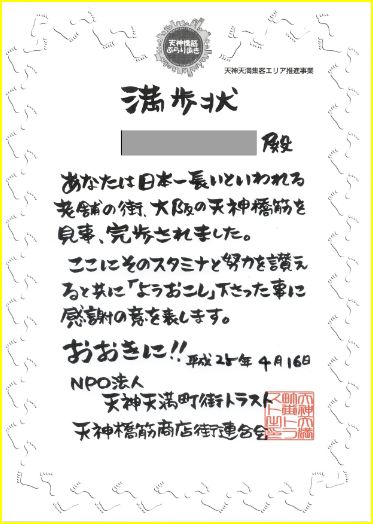 天神橋筋
ぶらり歩き
天神天満集客エリア推進事業
満歩状
殿
あなたは日本一長いといわれる
老舗の街、大阪の天神橋筋を
見事、完歩されました。
ここにそのスタミナと努力を讃え
ると共に「ようおこし」下さった事に
感謝の意を表します。
おおきに!! 平成25年4月16日
NPO法人
天神天満町街トラスト
天神橋筋商店街連合会